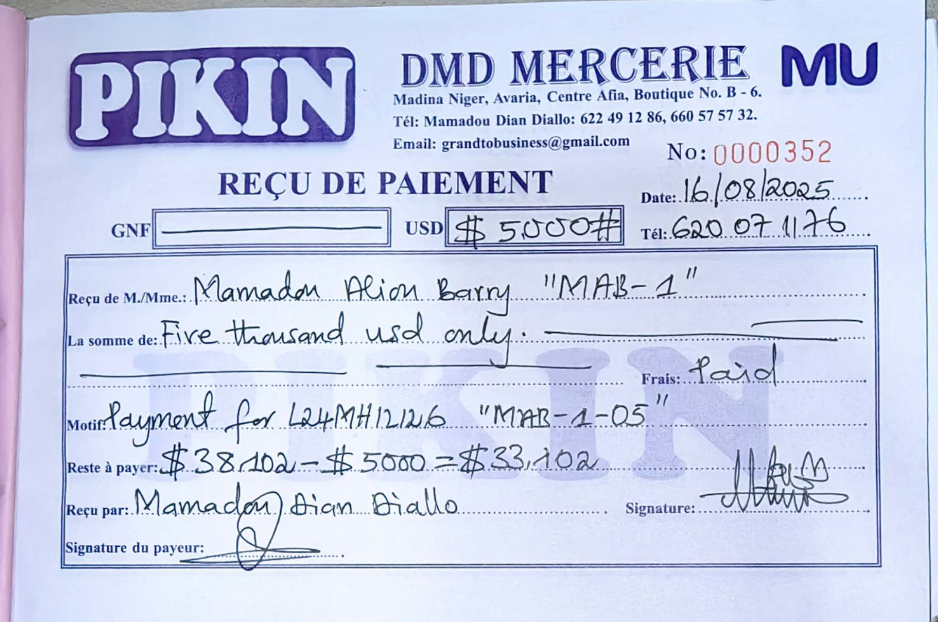 PIKIN
DMD MERCERIE
MU
Madina Niger, Avaria, Centre Afia, Boutique No. B - 6.
Tél: Mamadou Dian Diallo: 622 49 12 86, 660 57 57 32.
Email: grandtobusiness@gmail.com
No: 0000352
REÇU DE PAIEMENT
Date: 16/08/2025
GNF
USD $ 5.000#
Tél: 620 07 11 76
Reçu de M./Mme.: Mamadou Aliou Barry "MAB-1"
La somme de: Five thousand usd only.
Frais: Paid
Motif: Payment for L24MH12126 "MAB-1-05"
Reste à payer: $ 38,102 - $ 5000 = $ 33,102
Reçu par: Mamadou Dian Diallo
Signature:
Signature du payeur:
PIKIN